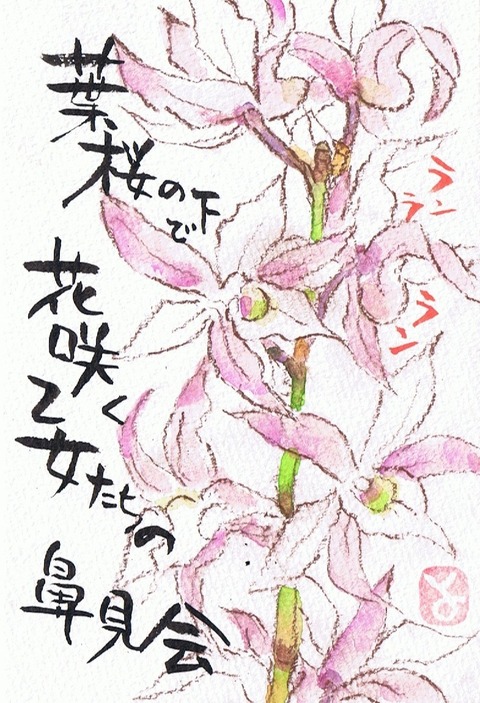 葉桜の下で
花咲く
乙女たちの
鼻見会
ラン
ラン
ラン